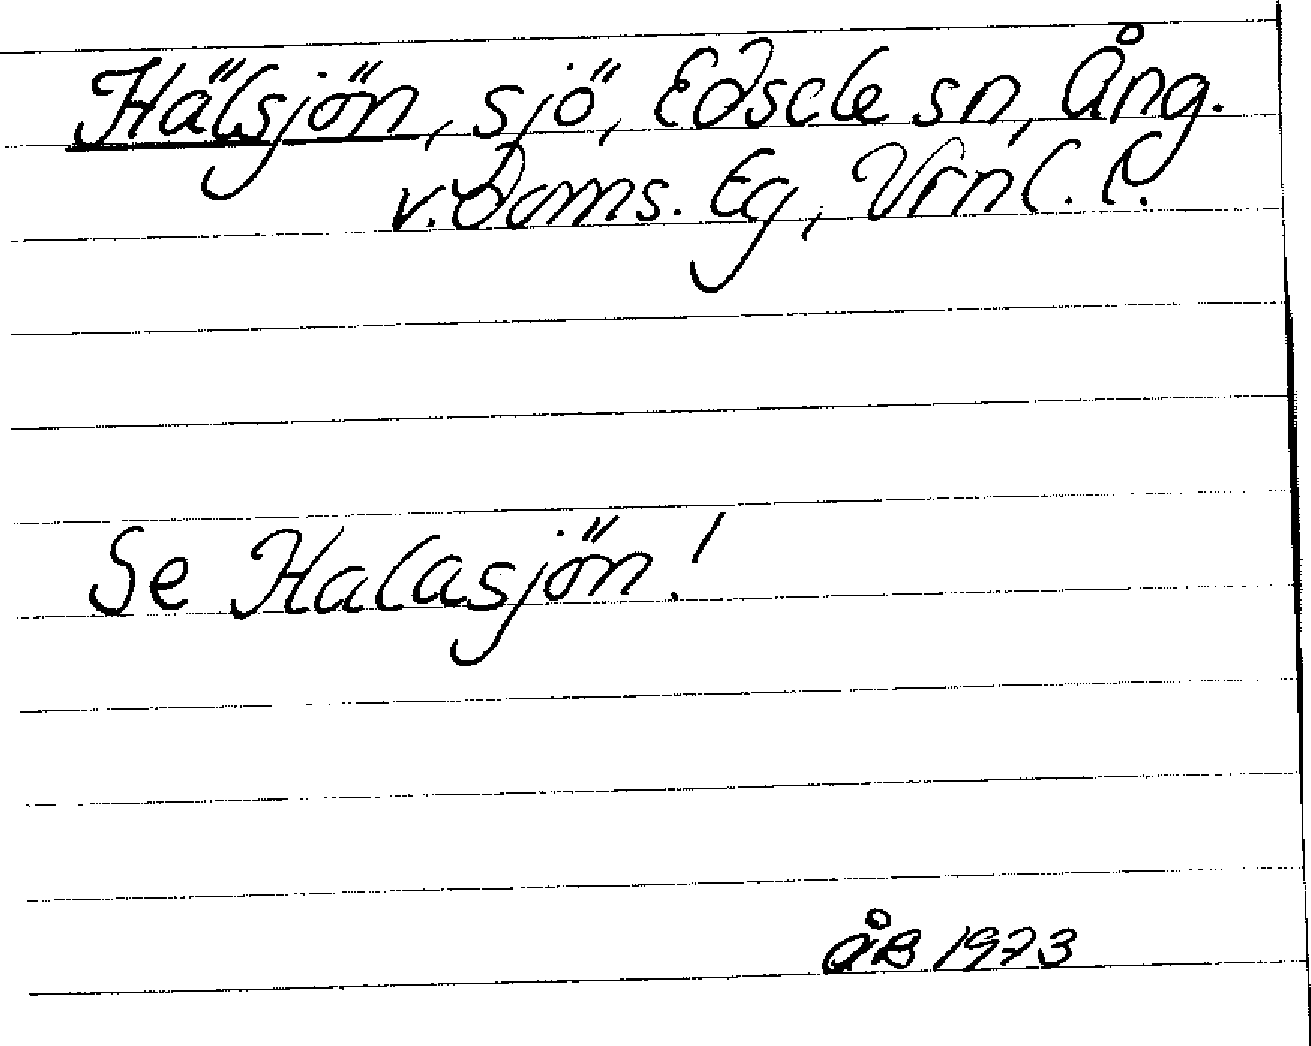 Hälsjön, sjö, Edsele sn, Ång.
v. Roms. Eg, Vrnl. l.
Se Halasjön!
ÅB 1973